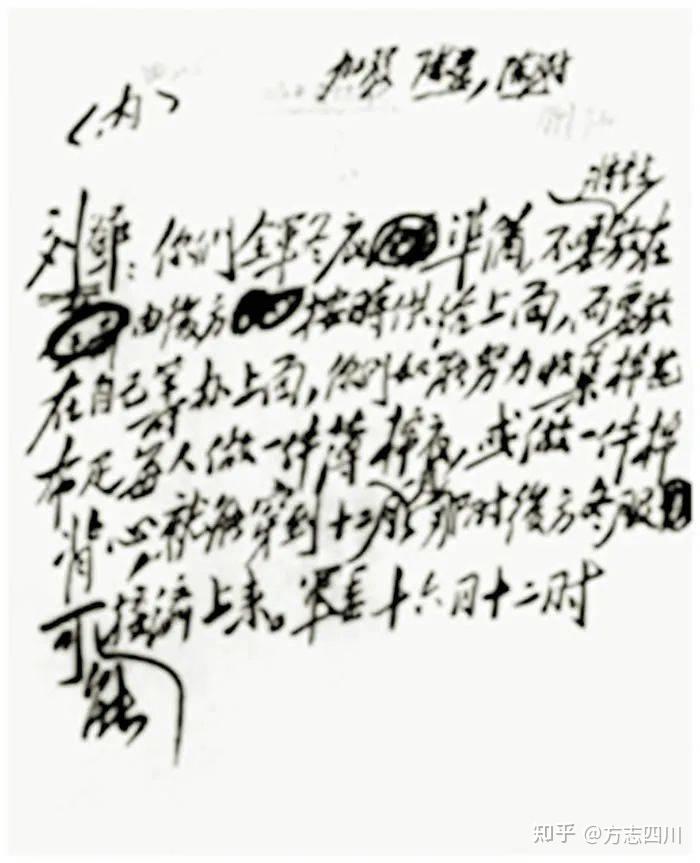 加发 陈粟,陈谢
(内)
刘鄧:你们全军冬衣準备不要放在
由後方按時供给上面,而要放
在自己筹办上面,你们如能努力收集棉花
布疋每人做一件薄棉衣,或做一件棉
背心,就能穿到十二月,那时後方冬服
可能接济上来。军委十六日十二时
知乎 @方志四川